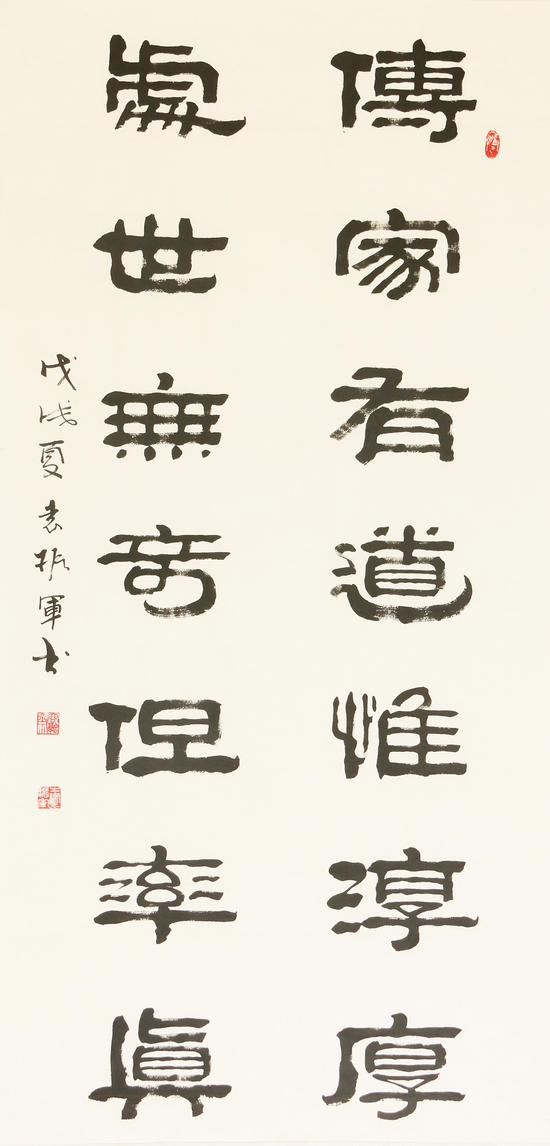 傳家有道惟淳厚
處世無奇但率真
戊戌夏袁振軍書